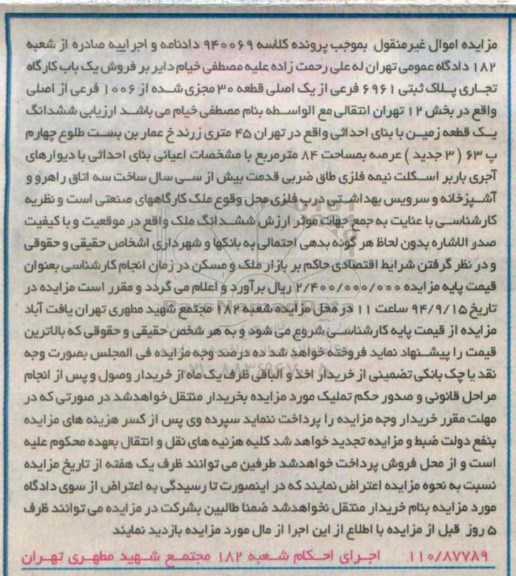 مزایده اموال غیرمنقول بموجب پرونده کلاسه ۹۴۰۰۶۹ دادنامه و اجراییه صادره از شعبه
۱۸۲ دادگاه عمومی تهران له علی رحمت زاده علیه مصطفی خیام دایر بر فروش یک باب کارگاه
تجاری پلاک ثبتی ۶۹۶۱ فرعی از یک اصلی قطعه ۳۰ مجزی شده از ۱۰۰۶ فرعی از اصلی
واقع در بخش ۱۲ تهران انتقالی مع الواسطه بنام مصطفی خیام می باشد ارزیابی ششدانگ
یک قطعه زمین با بنای احداثی واقع در تهران ۴۵ متری زرند خ عمار بن بست طلوع چهارم
پ ۶۳ ( ۳ جدید ) عرصه بمساحت ۸۴ مترمربع با مشخصات اعیانی بنای احداثی با دیوارهای
آجری باربر اسکلت نیمه فلزی طاق ضربی قدمت بیش از سی سال ساخت سه اتاق راهرو و
آشپزخانه و سرویس بهداشتی درب فلزی محل وقوع ملک کارگاههای صنعتی است و نظریه
کارشناسی با عنایت به جمع جهات موثر ارزش ششدانگ ملک واقع در موقعیت و با کیفیت
صدر الاشاره بدون لحاظ هر گونه بدهی احتمالی به بانکها و شهرداری اشخاص حقیقی و حقوقی
و در نظر گرفتن شرایط اقتصادی حاکم بر بازار ملک و مسکن در زمان انجام کارشناسی بعنوان
قیمت پایه مزایده ۲/۴۰۰/۰۰۰/۰۰۰ ریال برآورد و اعلام می گردد و مقرر است مزایده در
تاریخ ۹۴/۹/۱۵ ساعت ۱۱ در محل مزایده شعبه ۱۸۲ مجتمع شهید مطهری تهران یافت آباد
مزایده از قیمت پایه کارشناسی شروع می شود و به هر شخص حقیقی و حقوقی که بالاترین
قیمت را پیشنهاد نماید فروخته خواهد شد ده درصد وجه مزایده فی المجلس بصورت وجه
نقد یا چک بانکی تضمینی از خریدار اخذ و الباقی ظرف یک ماه از خریدار وصول و پس از انجام
مراحل قانونی و صدور حکم تملیک مورد مزایده بخریدار منتقل خواهدشد در صورتی که در
مهلت مقرر خریدار وجه مزایده را پرداخت ننماید سپرده وی پس از کسر هزینه های مزایده
بنفع دولت ضبط و مزایده تجدید خواهد شد کلیه هزنیه های نقل و انتقال بعهده محکوم علیه
است و از محل فروش پرداخت خواهدشد طرفین می توانند ظرف یک هفته از تاریخ مزایده
نسبت به نحوه مزایده اعتراض نمایند که در اینصورت تا رسیدگی به اعتراض از سوی دادگاه
مورد مزایده بنام خریدار منتقل نخواهدشد ضمنا طالبین بشرکت در مزایده می توانند ظرف
۵ روز قبل از مزایده با اطلاع از این اجرا از مال مورد مزایده بازدید نمایند
۱۱۰/۸۷۷۸۹ اجرای احکام شعبه ۱۸۲ مجتمع شهید مطهری تهران